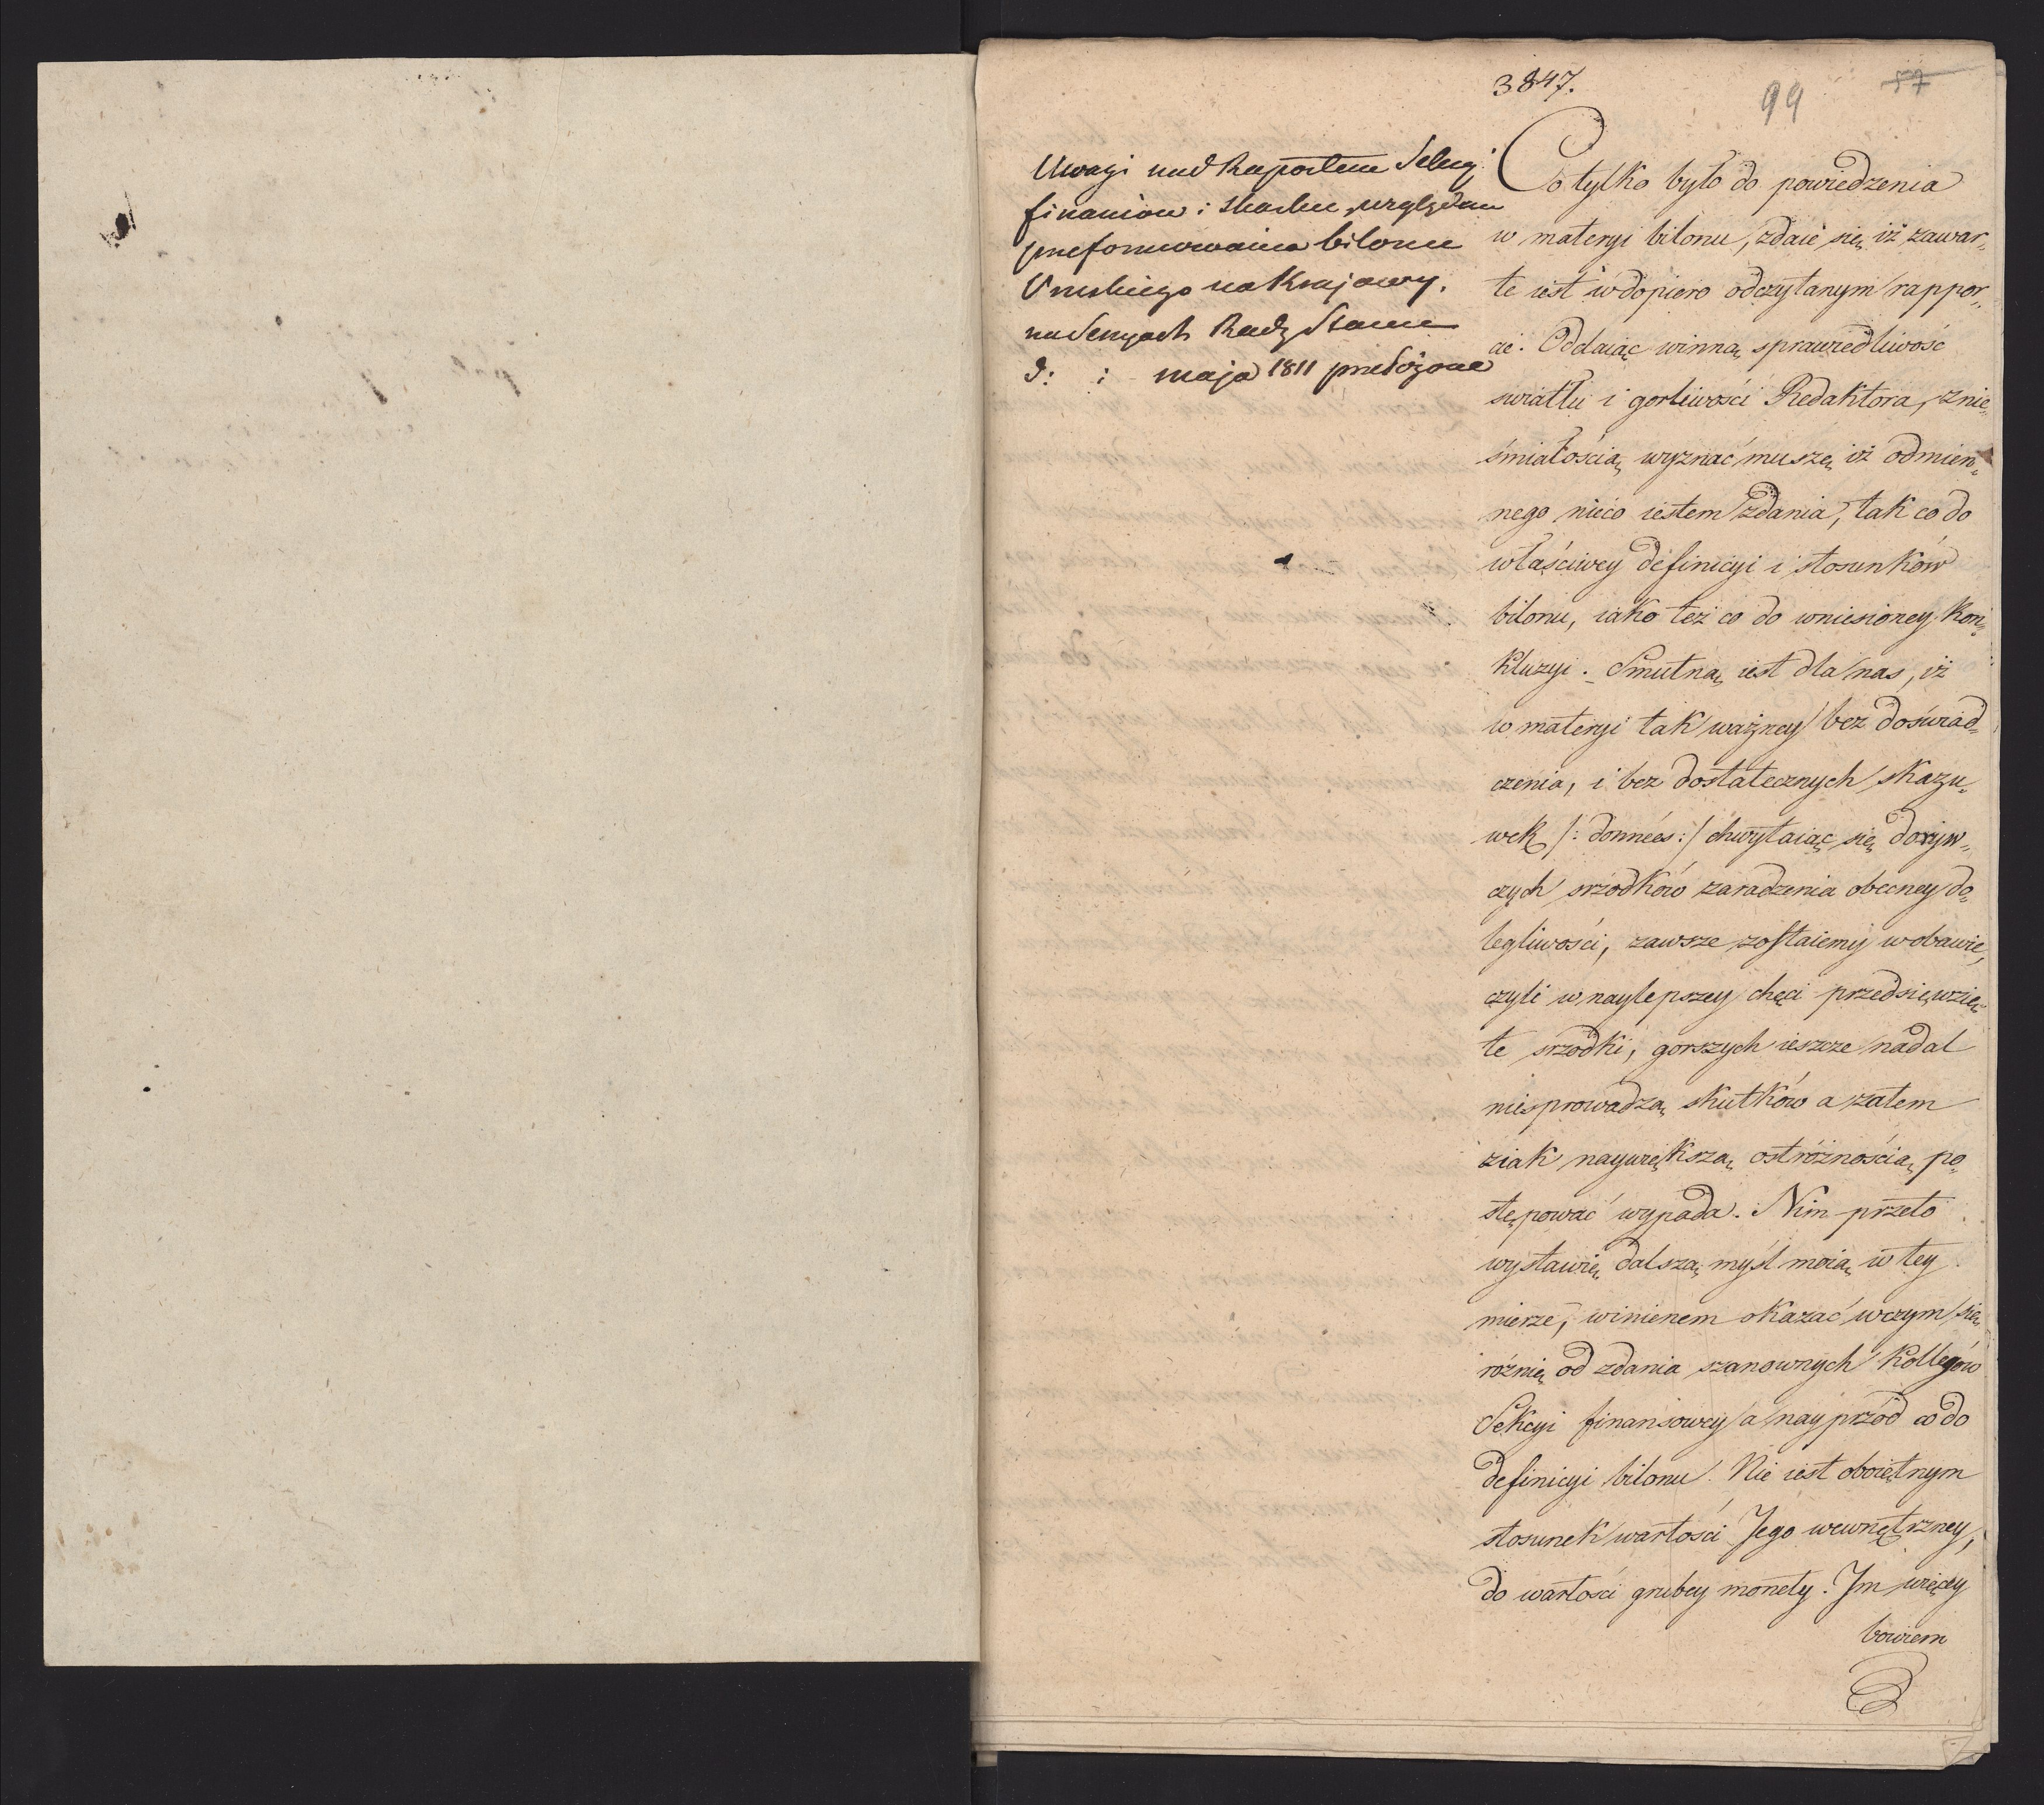 3847.
99
57
Uwagi nad Raportem Sekcyi
finansów i skarbu, względem
przeformowania bilonu
Pruskiego na Krajowy.
na Sessyach Rady Stanu
d: : maja 1811 przełożone
Co tylko było do powiedzenia
w materyi bilonu, zdaie się iż zawar„
te iest w dopiero odczytanym rappor„
cie. Oddaiąc winną sprawiedliwość
swiatłu i gorliwości Redaktora, z nie„
śmiałością wyznać muszę iż odmien„
nego nieco iestem zdania, tak co do
właściwey definicyi i stosunków
bilonu, iako też co do wniesioney kon„
kluzyi. Smutną iest dla nas, iż
w materyi tak ważney bez doświad„
czenia, i bez dostatecznych skazu„
wek /: données :/ chwytaiąc się doryw„
czych srzodków zaradzenia obecney do„
legliwości, zawsze zostaiemy w obawie,
czyli w naylepszey chęci przedsięwzię„
te srzodki, gorszych ieszcze nadal
niesprowadzą skutków a zatem
z iak naywiększą ostrożnością po„
stępować wypada. Nim przeto
wystawię dalszą myśl moią w tey
mierze, winienem okazać w czym się
różnię od zdania szanownych Kollegów
Sekcyi finansowey a nayprzód co do
definicyi bilonu. Nie iest oboiętnym
stosunek wartości Jego wewnętrzney,
do wartości grubey monety. Im więcey
bowiem